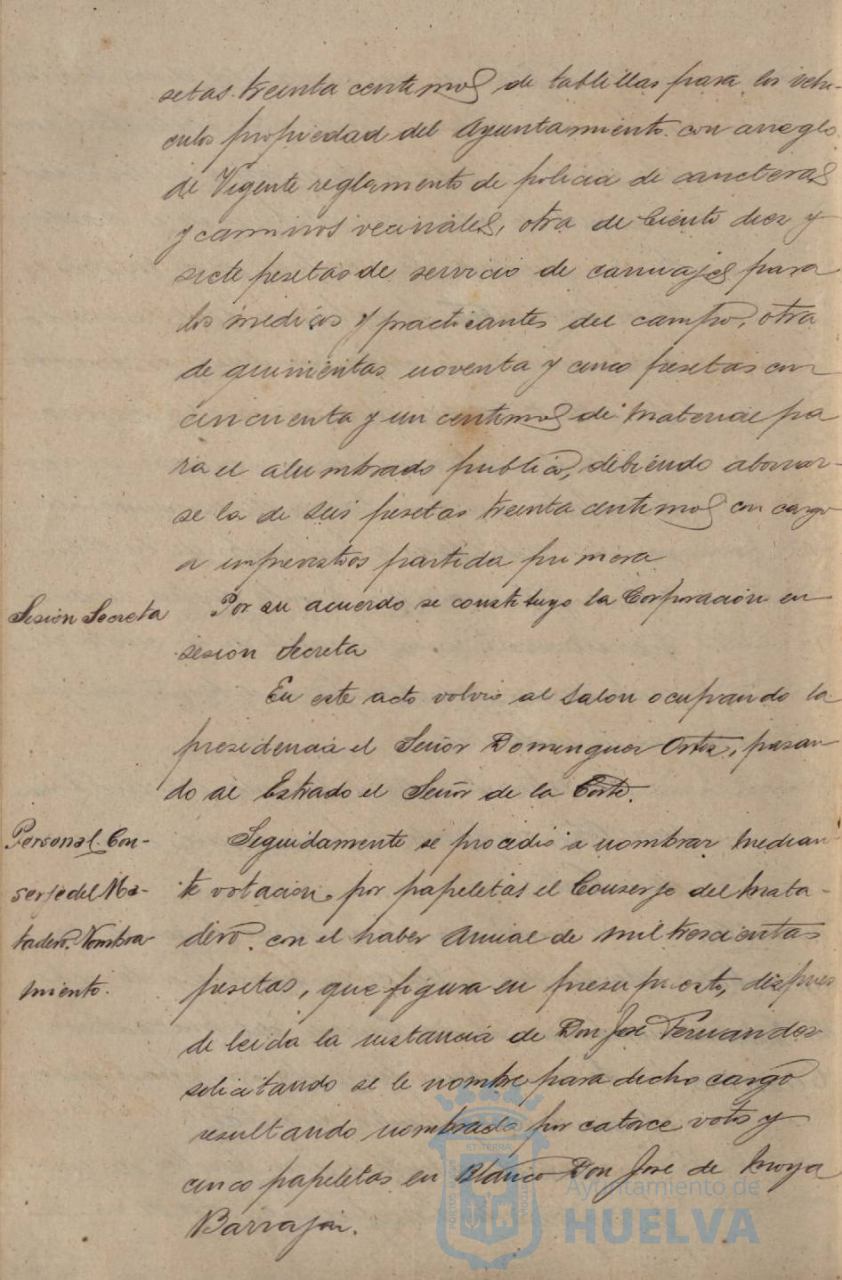 setas treinta centimos de tablillas para los vehi-
culos propiedad del Ayuntamiento con arreglo
al Vigente reglamento de policia de carreteras
y caminos vecinales, otra de Ciento diez y
siete pesetas de servicio de carruajes para
los medicos y practicantes del campo, otra
de quinientas noventa y cinco pesetas con
cincuenta y un centimos de material pa
ra el alumbrado publico, debiendo abonar-
se la de seis pesetas treinta centimos con cargo
a imprevistos partida primera
Sesión Secreta
Por su acuerdo se constituyo la Corporación en
sesión Secreta
En este acto volvio al Salon ocupando la
presidencia el Señor Dominguez Ortiz, pasan
do al Estrado el Señor de la Corte.
Personal. Con-
serje del Ma-
tadero. Nombra
miento.
Seguidamente se procedio a nombrar median
te votación por papeletas el Conserje del Mata-
dero con el haber Anual de mil trescientas
pesetas, que figura en presupuesto, despues
de leida la instancia de Don José Fernandez
solicitando se le nombre para dicho cargo
resultando nombrado por catorce votos y
cinco papeletas en blanco Don José de Moya
Ayuntamiento de
HUELVA